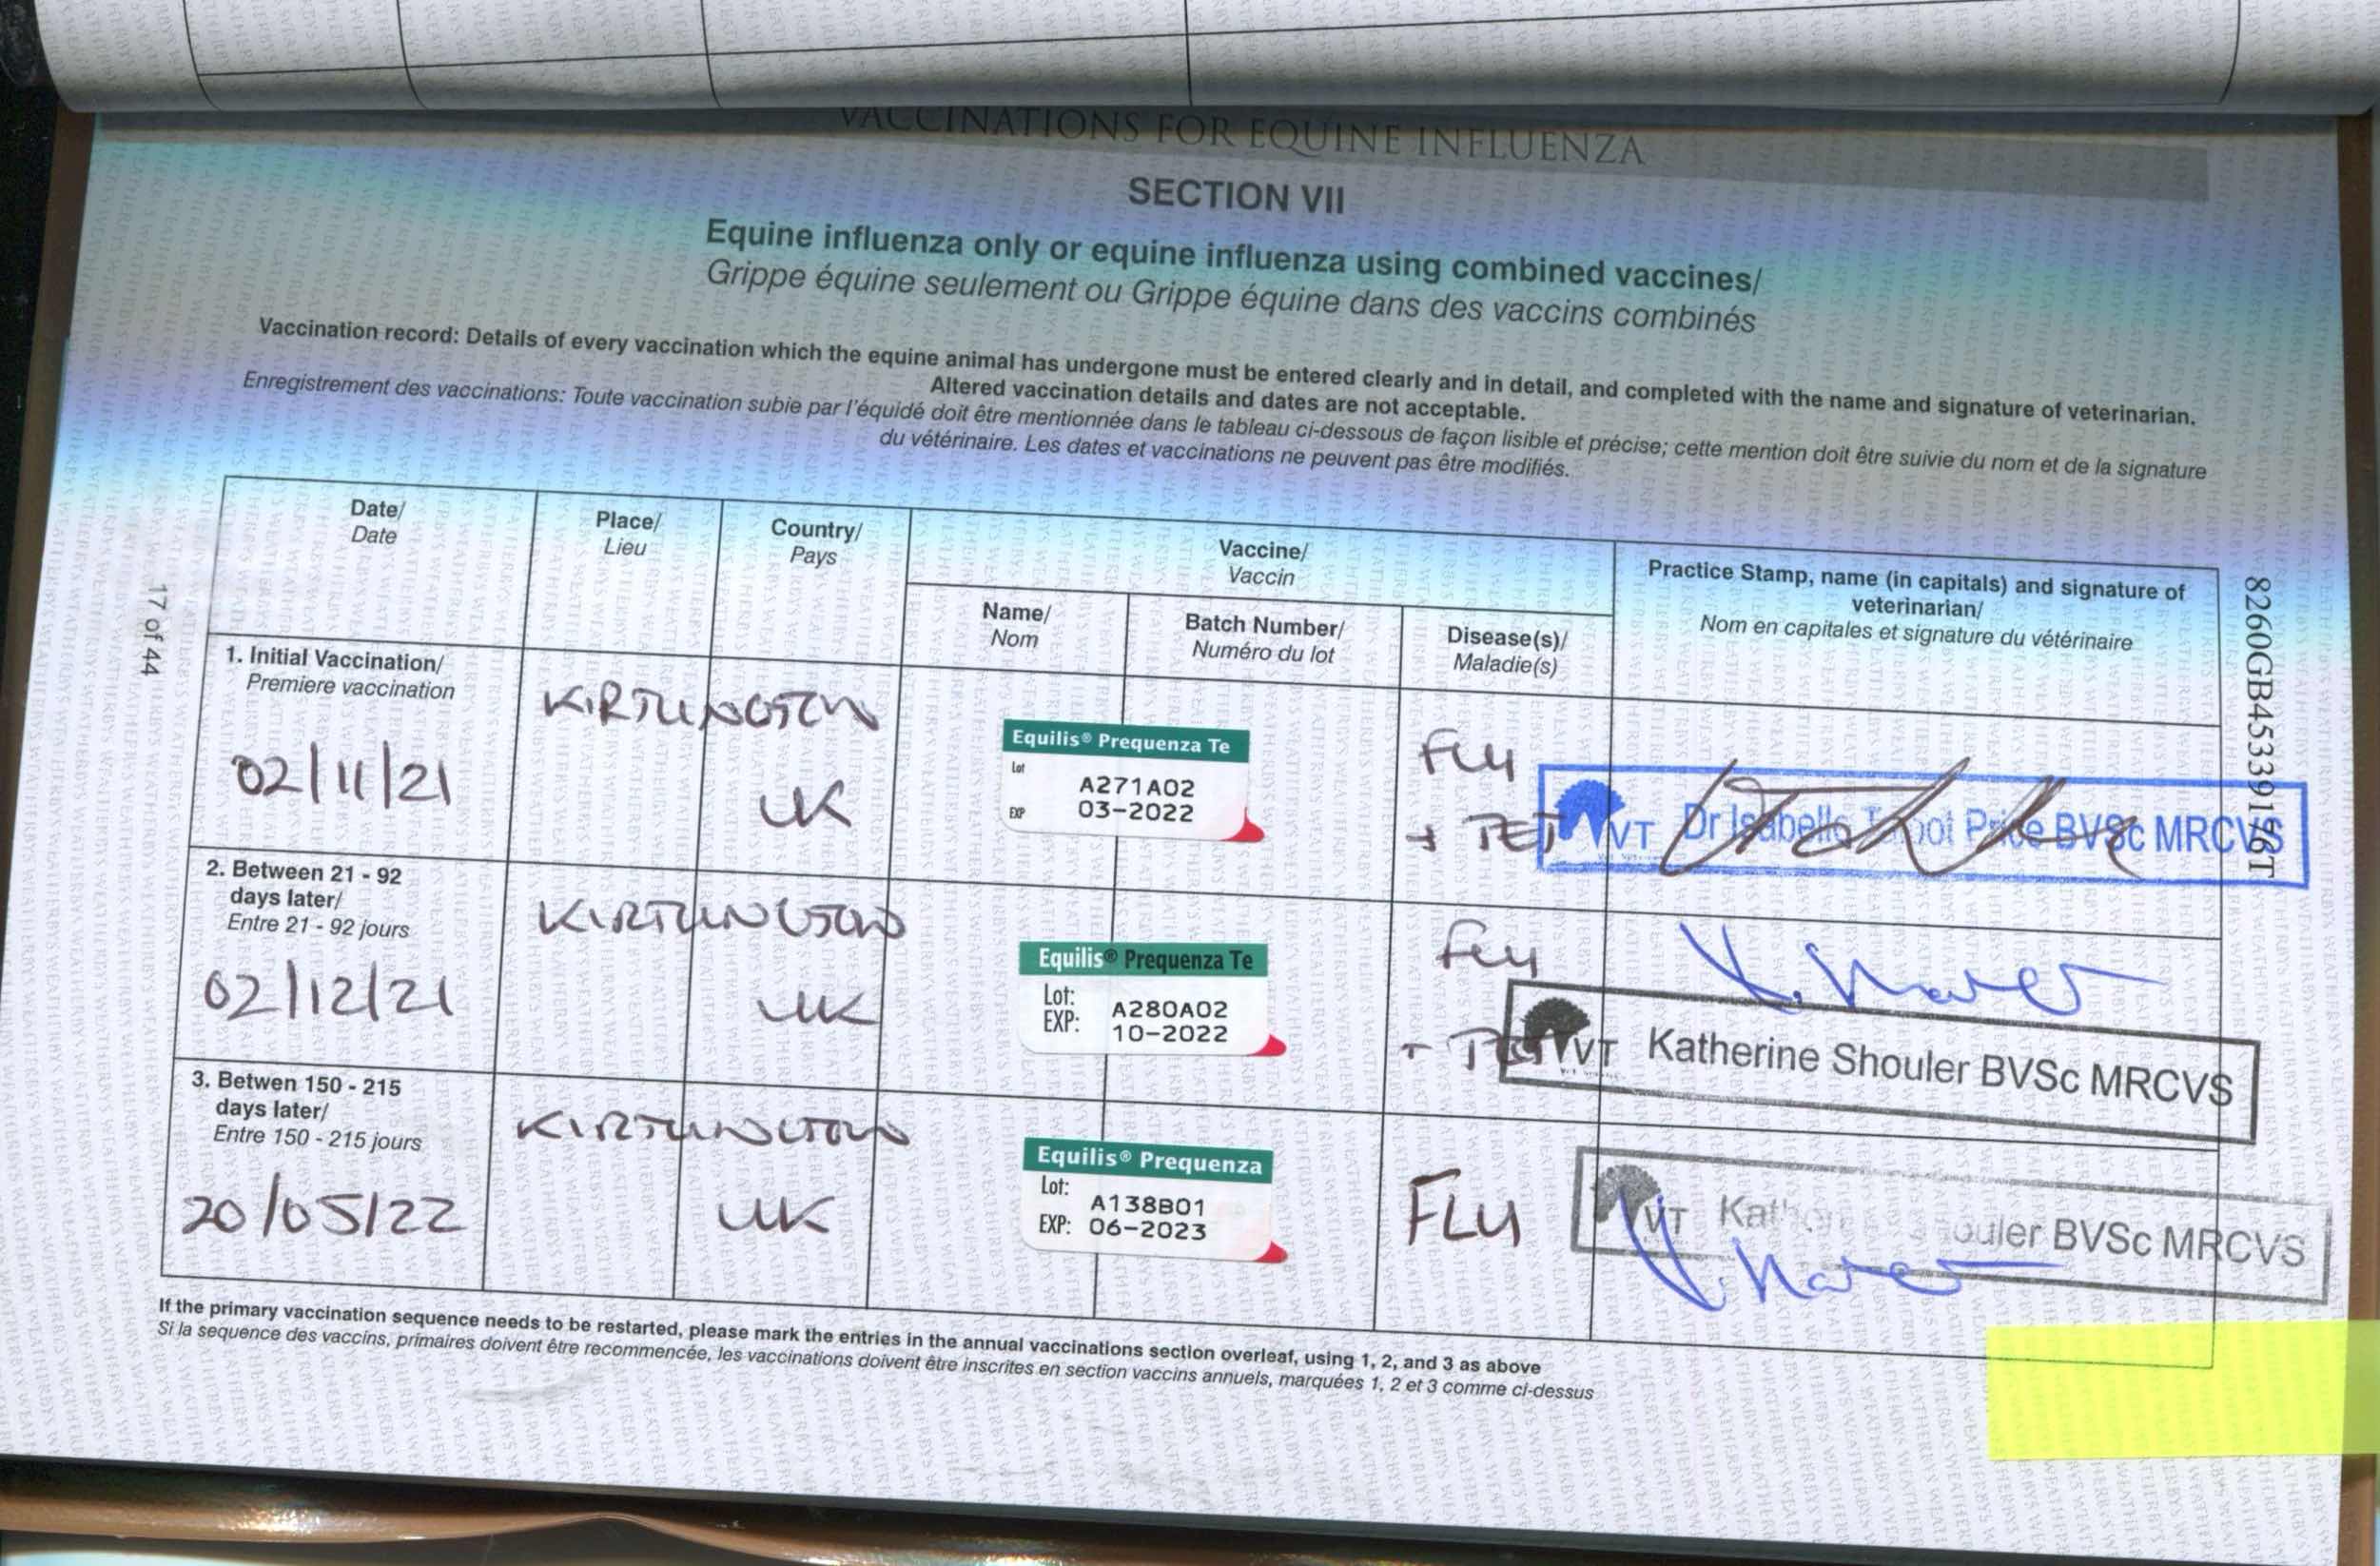 VACCINATIONS FOR EQUINE INFLUENZA
SECTION VII
Equine influenza only or equine influenza using combined vaccines/
Grippe équine seulement ou Grippe équine dans des vaccins combinés
Vaccination record: Details of every vaccination which the equine animal has undergone must be entered clearly and in detail, and completed with the name and signature of veterinarian.
Altered vaccination details and dates are not acceptable.
Enregistrement des vaccinations: Toute vaccination subie par l'équidé doit être mentionnée dans le tableau ci-dessous de façon lisible et précise; cette mention doit être suivie du nom et de la signature
du vétérinaire. Les dates et vaccinations ne peuvent pas être modifiés.
Date/
Date
Place/
Lieu
Country/
Pays
Vaccine/
Vaccin
Name/
Nom
Batch Number/
Numéro du lot
Disease(s)/
Maladie(s)
Practice Stamp, name (in capitals) and signature of
veterinarian/
Nom en capitales et signature du vétérinaire
1. Initial Vaccination/
Premiere vaccination
02/11/21
KIRTLINGTON
UK
Equilis® Prequenza Te
Lot
A271A02
EXP 03-2022
FLU
+ TET
VT Dr Isabella Price BVSc MRCVS
2. Between 21 - 92
days later/
Entre 21 - 92 jours
02/12/21
KIRTLINGTON
UK
Equilis® Prequenza Te
Lot: A280A02
EXP: 10-2022
FLU
+ TET
VT Katherine Shouler BVSc MRCVS
3. Betwen 150 - 215
days later/
Entre 150 - 215 jours
20/05/22
KIRTLINGTON
UK
Equilis® Prequenza
Lot: A138B01
EXP: 06-2023
FLU
VT Katherine Shouler BVSc MRCVS
If the primary vaccination sequence needs to be restarted, please mark the entries in the annual vaccinations section overleaf, using 1, 2, and 3 as above
Si la sequence des vaccins, primaires doivent être recommencée, les vaccinations doivent être inscrites en section vaccins annuels, marquées 1, 2 et 3 comme ci-dessus
17 of 44
8260GB45339176T